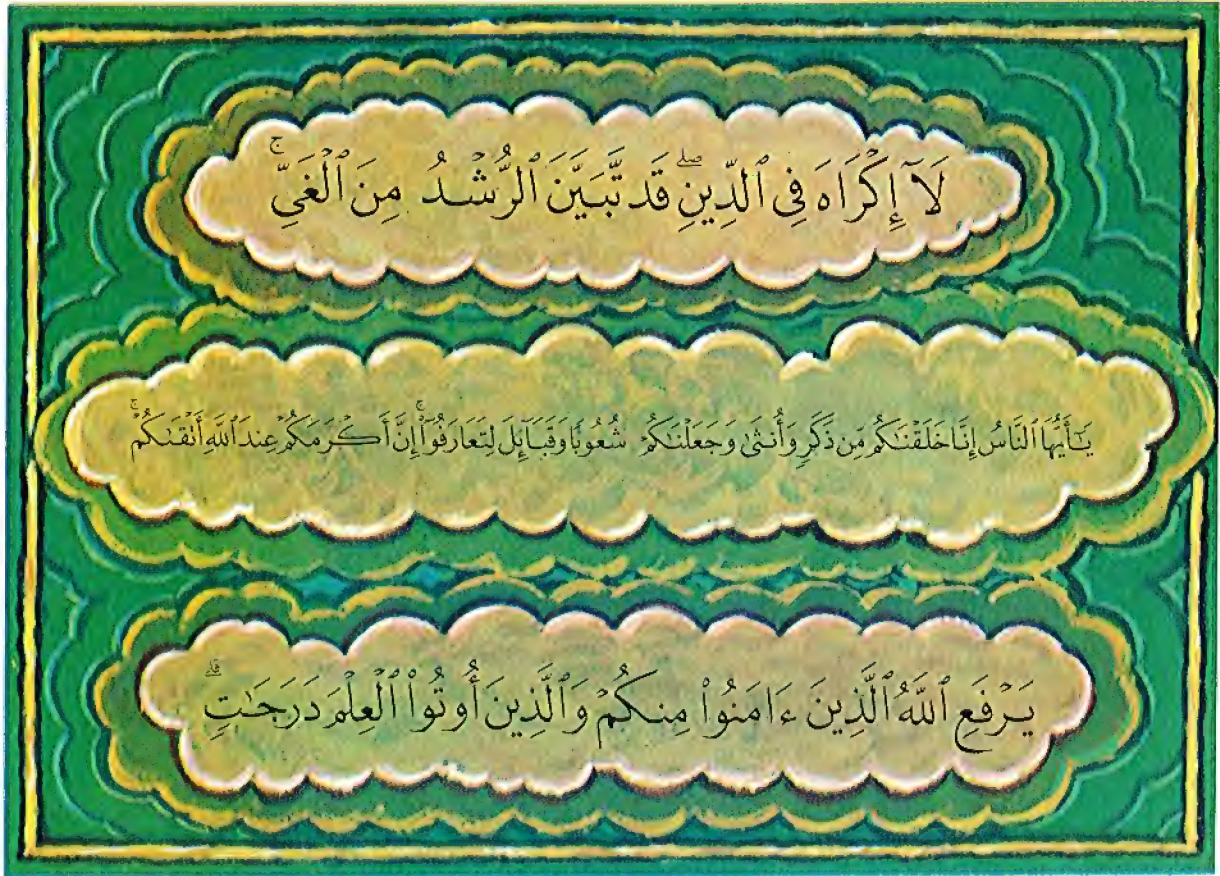 لَآ إِكْرَاهَ فِى ٱلدِّينِ ۖ قَد تَّبَيَّنَ ٱلرُّشْدُ مِنَ ٱلْغَىِّ ۚ
يَـٰٓأَيُّهَا ٱلنَّاسُ إِنَّا خَلَقْنَـٰكُم مِّن ذَكَرٍ وَأُنثَىٰ وَجَعَلْنَـٰكُمْ شُعُوبًا وَقَبَآئِلَ لِتَعَارَفُوٓا۟ ۚ إِنَّ أَكْرَمَكُمْ عِندَ ٱللَّهِ أَتْقَىٰكُمْ ۚ
يَرْفَعِ ٱللَّهُ ٱلَّذِينَ ءَامَنُوا۟ مِنكُمْ وَٱلَّذِينَ أُوتُوا۟ ٱلْعِلْمَ دَرَجَـٰتٍ ۗ